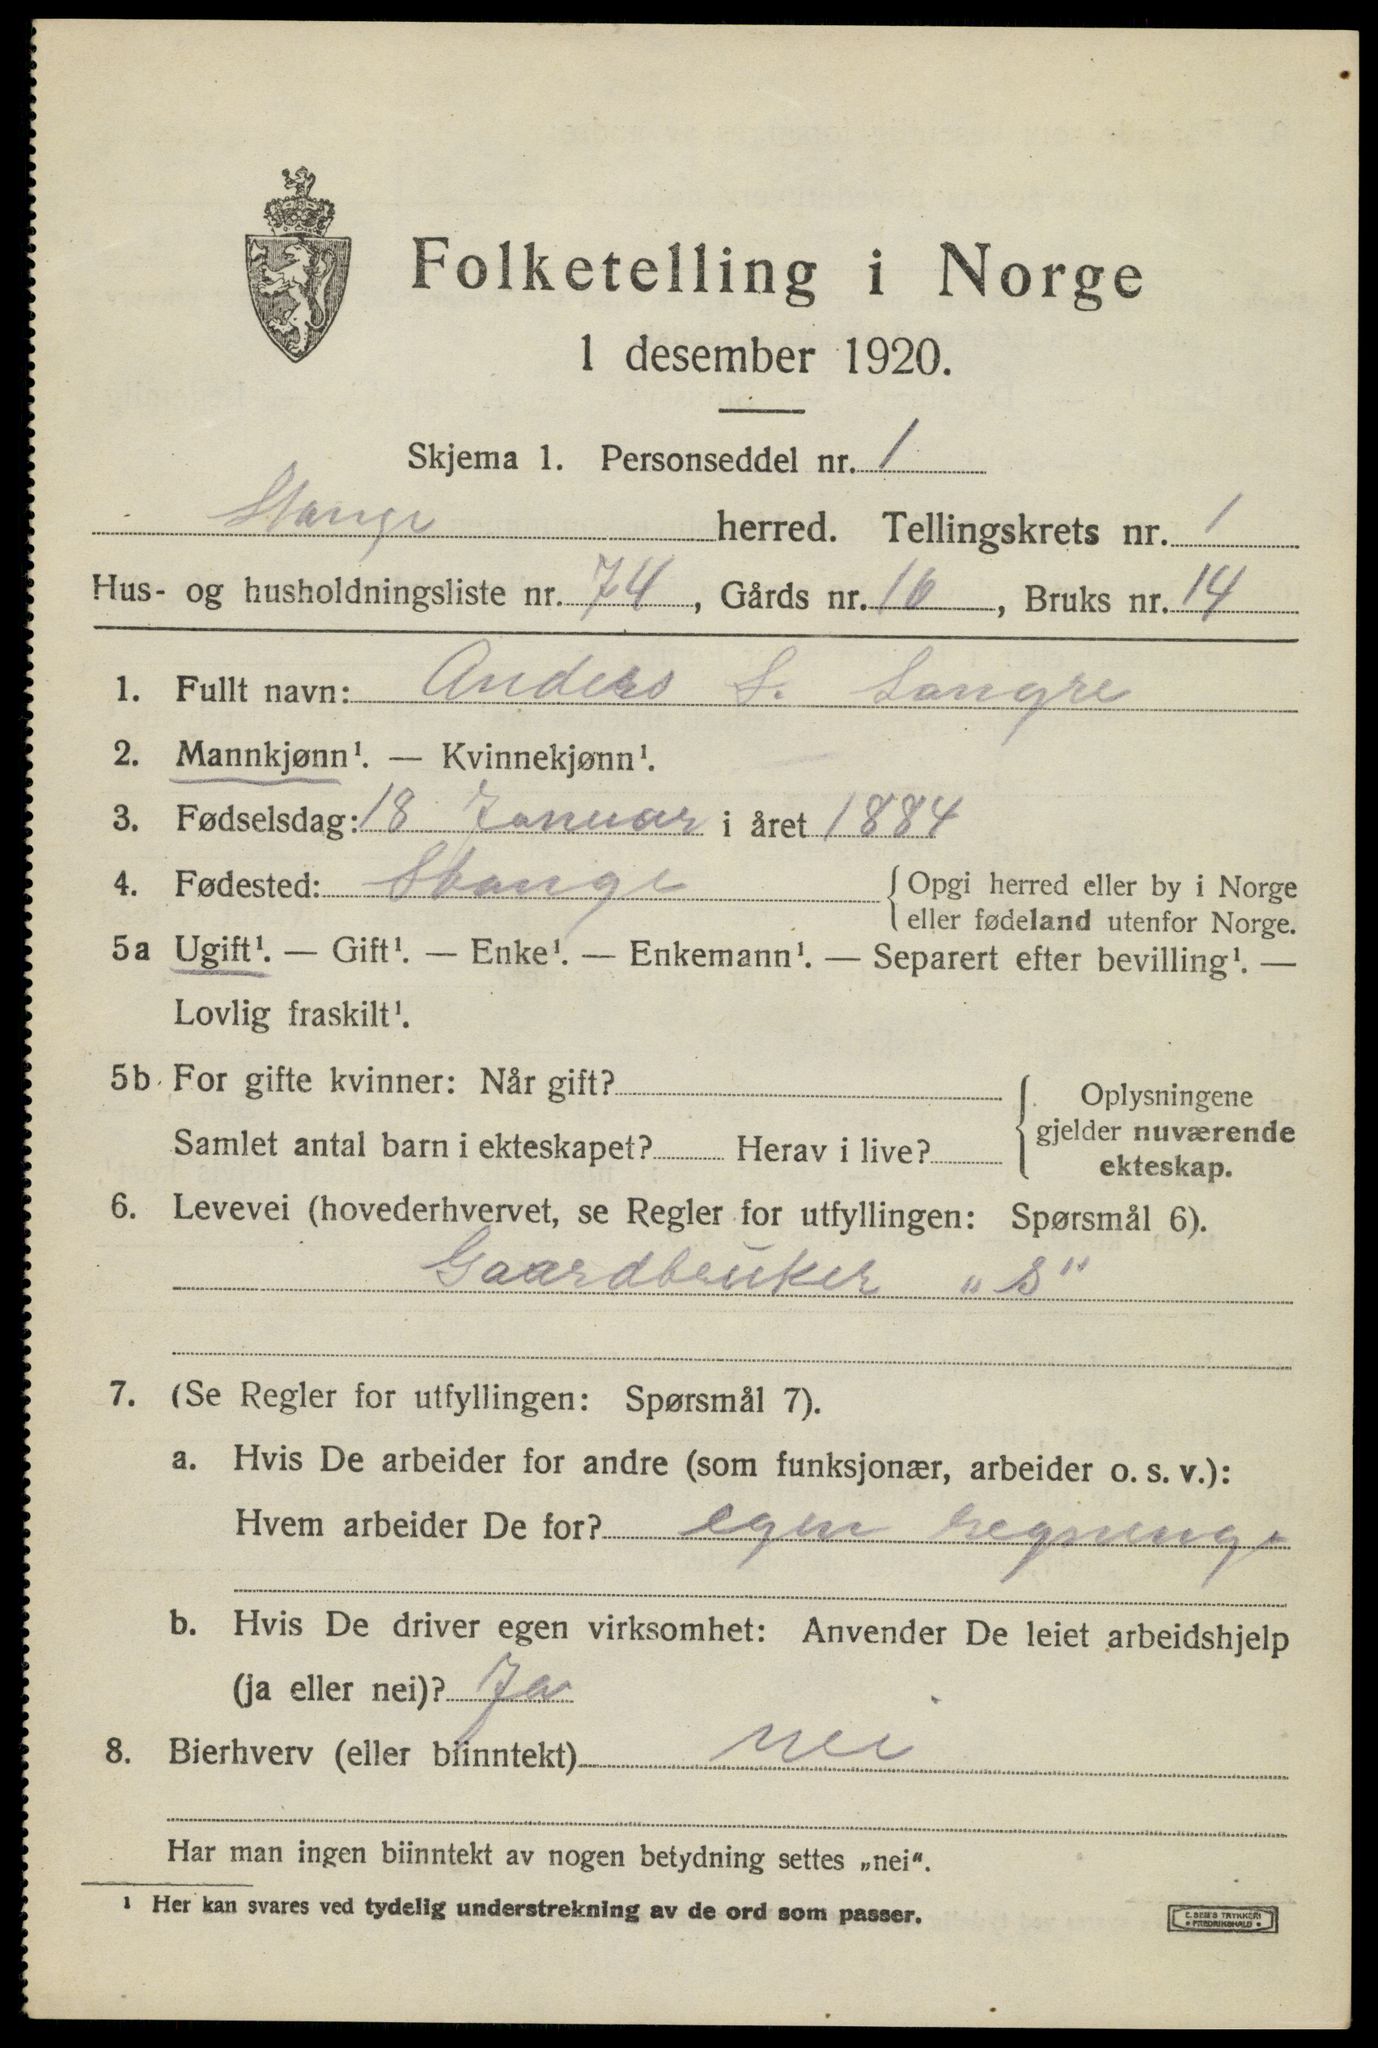 Folketelling i Norge
1 desember 1920.
Skjema 1. Personseddel nr. 1
Stange herred. Tellingskrets nr. 1
Hus- og husholdningsliste nr. 74, Gårds nr. 16, Bruks nr. 14
1. Fullt navn: Anders S. Sangre
2. Mannkjønn¹. — Kvinnekjønn¹.
3. Fødselsdag: 18 Januar i året 1884
4. Fødested: Stange { Opgi herred eller by i Norge
eller fødeland utenfor Norge.
5a Ugift¹. — Gift¹. — Enke¹. — Enkemann¹. — Separert efter bevilling¹. —
Lovlig fraskilt¹.
5b For gifte kvinner: Når gift?
Samlet antal barn i ekteskapet? Herav i live?
Oplysningene
gjelder nuværende
ekteskap.
6. Levevei (hovederhvervet, se Regler for utfyllingen: Spørsmål 6).
Gaardbruker „S"
7. (Se Regler for utfyllingen: Spørsmål 7).
a. Hvis De arbeider for andre (som funksjonær, arbeider o. s. v.):
Hvem arbeider De for? egen regning
b. Hvis De driver egen virksomhet: Anvender De leiet arbeidshjelp
(ja eller nei)? Ja
8. Bierhverv (eller biinntekt) nei
Har man ingen biinntekt av nogen betydning settes „nei".
¹ Her kan svares ved tydelig understrekning av de ord som passer.
E. SEM'S TRYKKERI
• FREDRIKSHALD •